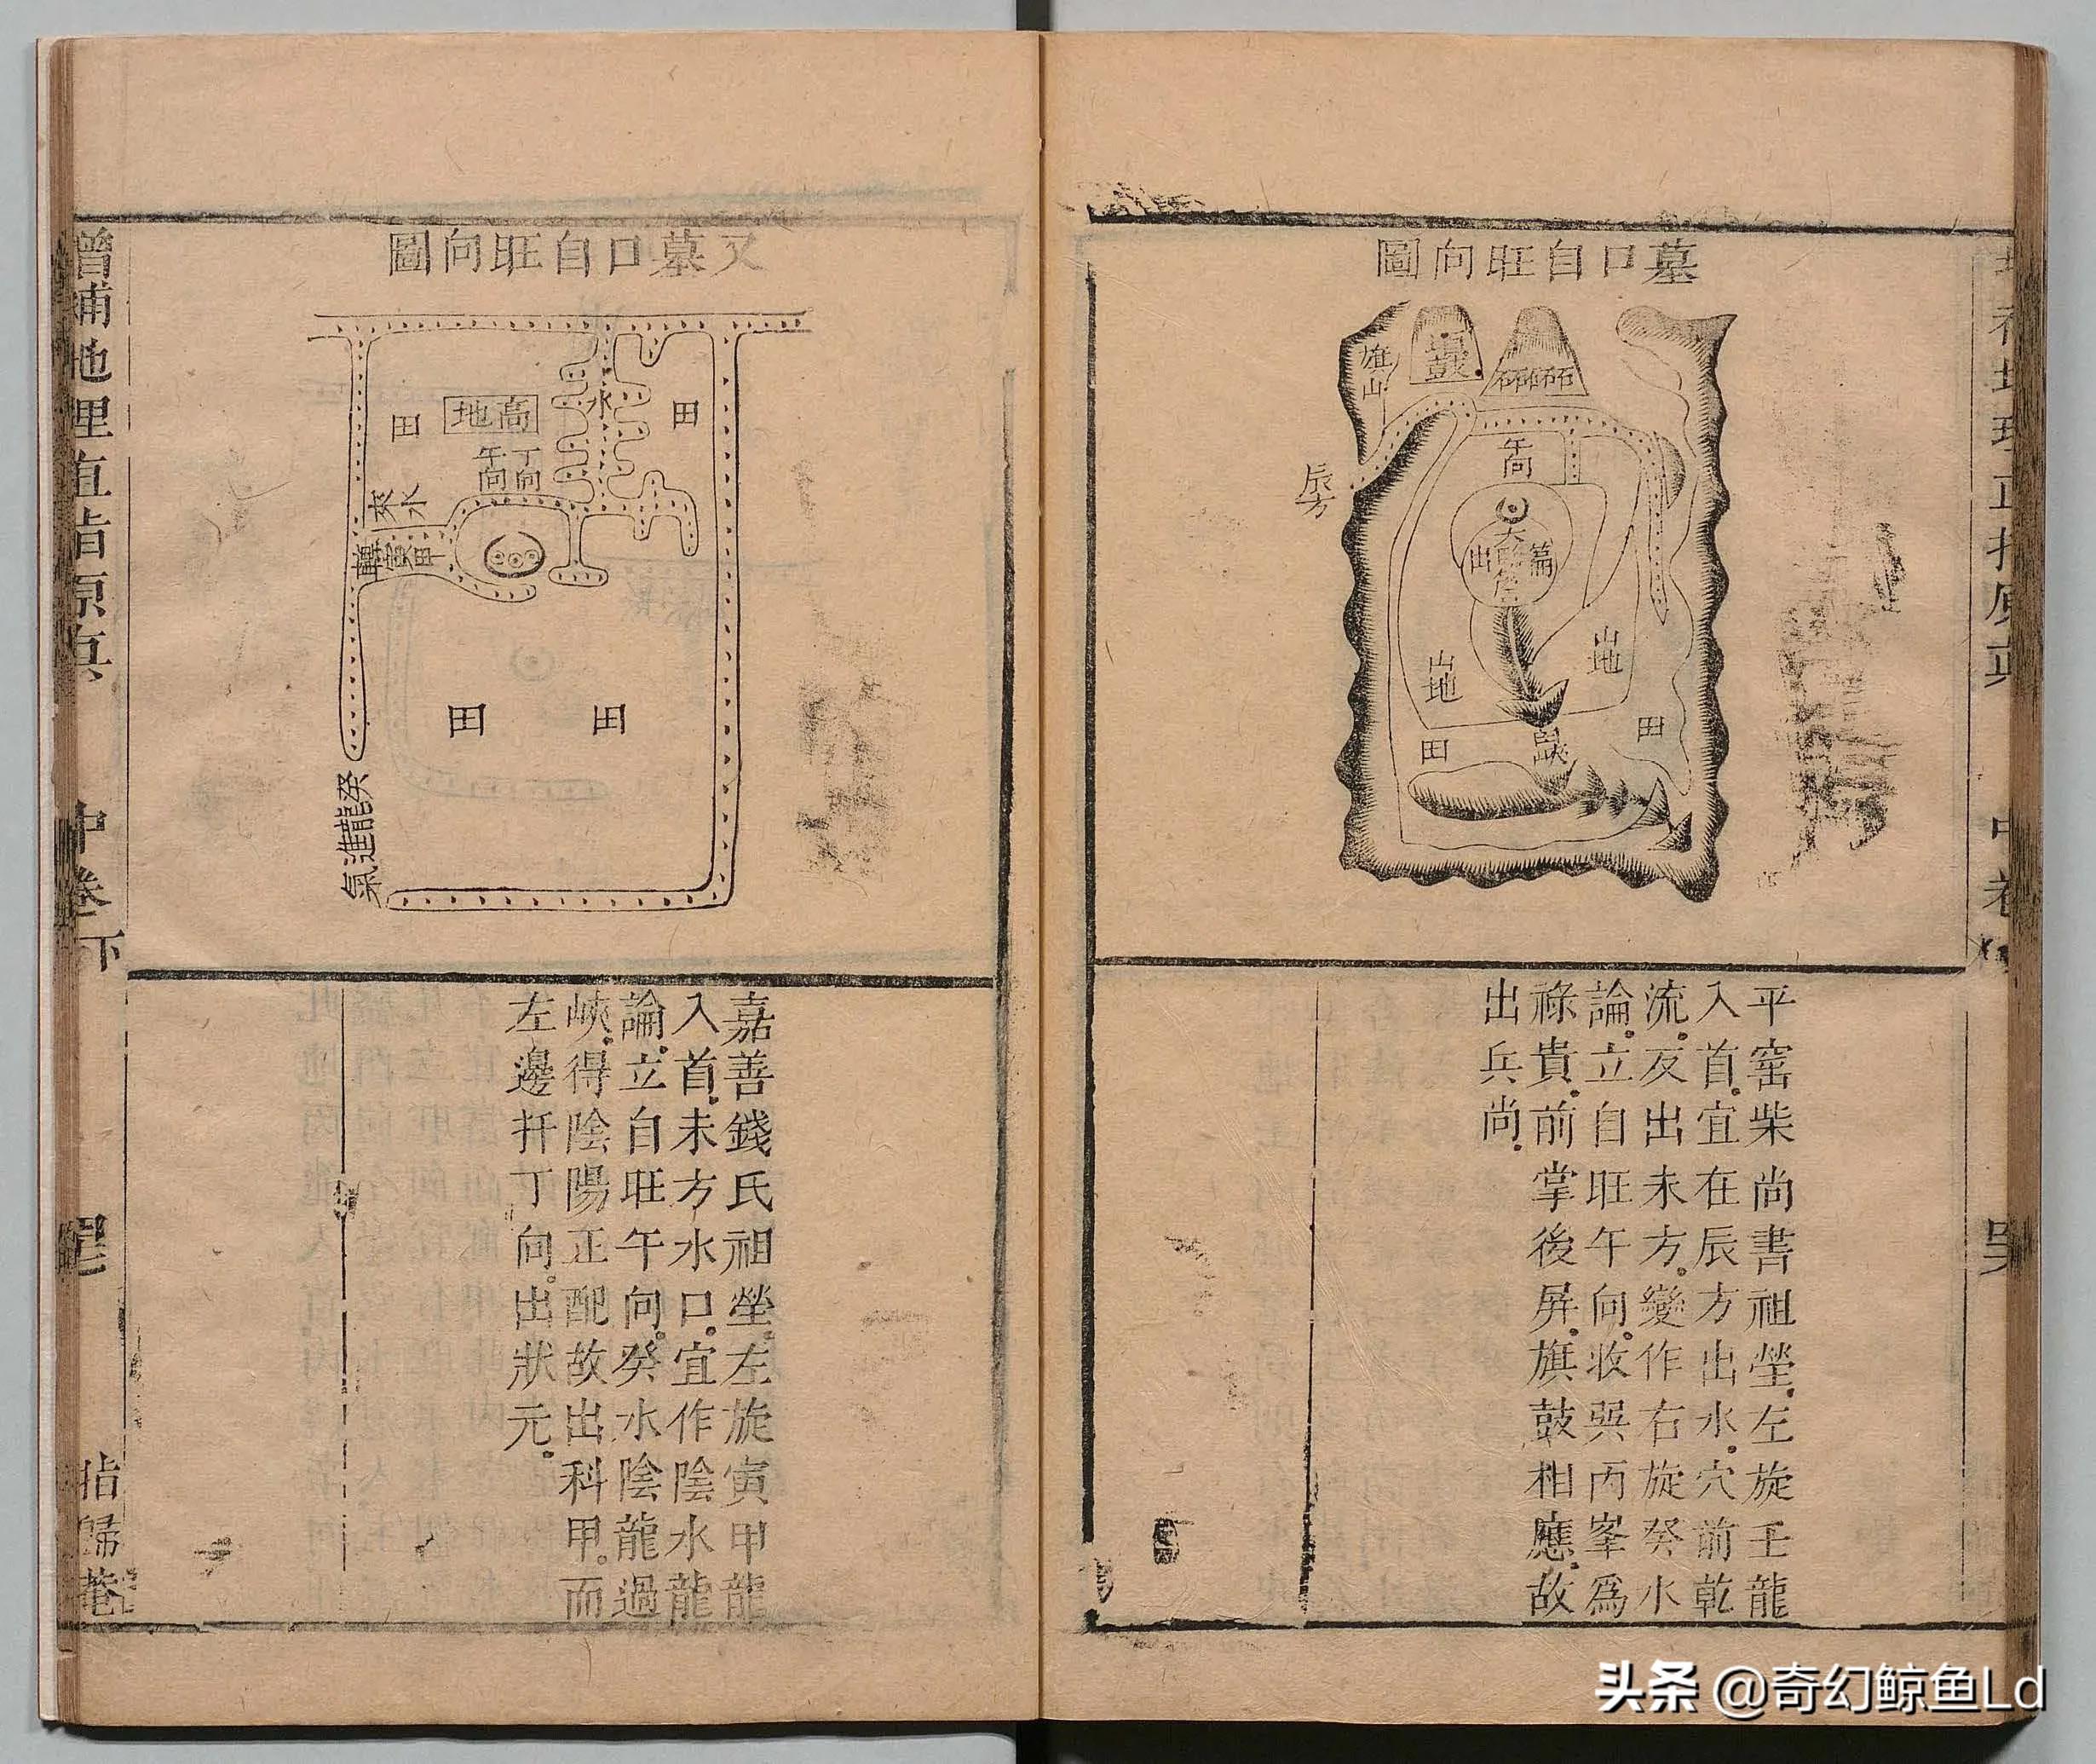 墓口自旺向圖
雄山
鼓
午向
辰方
出
山地
山地
田
田
平窑柴尚書祖塋左旋壬龍
入首宜在辰方出水穴前乾
流反出未方變作右旋癸水
論立自旺午向收巽丙峯為
祿貴前掌後屏旗鼓相應故
出兵尚
又墓口自旺向圖
田
高地
水
田
丁向
午向
來水
甲寅轉
田
田
癸龍進氣
嘉善錢氏祖塋左旋寅甲龍
入首未方水口宜作陰水龍
論立自旺午向癸水陰龍過
峽得陰陽正配故出科甲而
左邊扦丁向出狀元
增補地理直指原真
中卷下
指歸菴
头条 @奇幻鲸鱼Ld